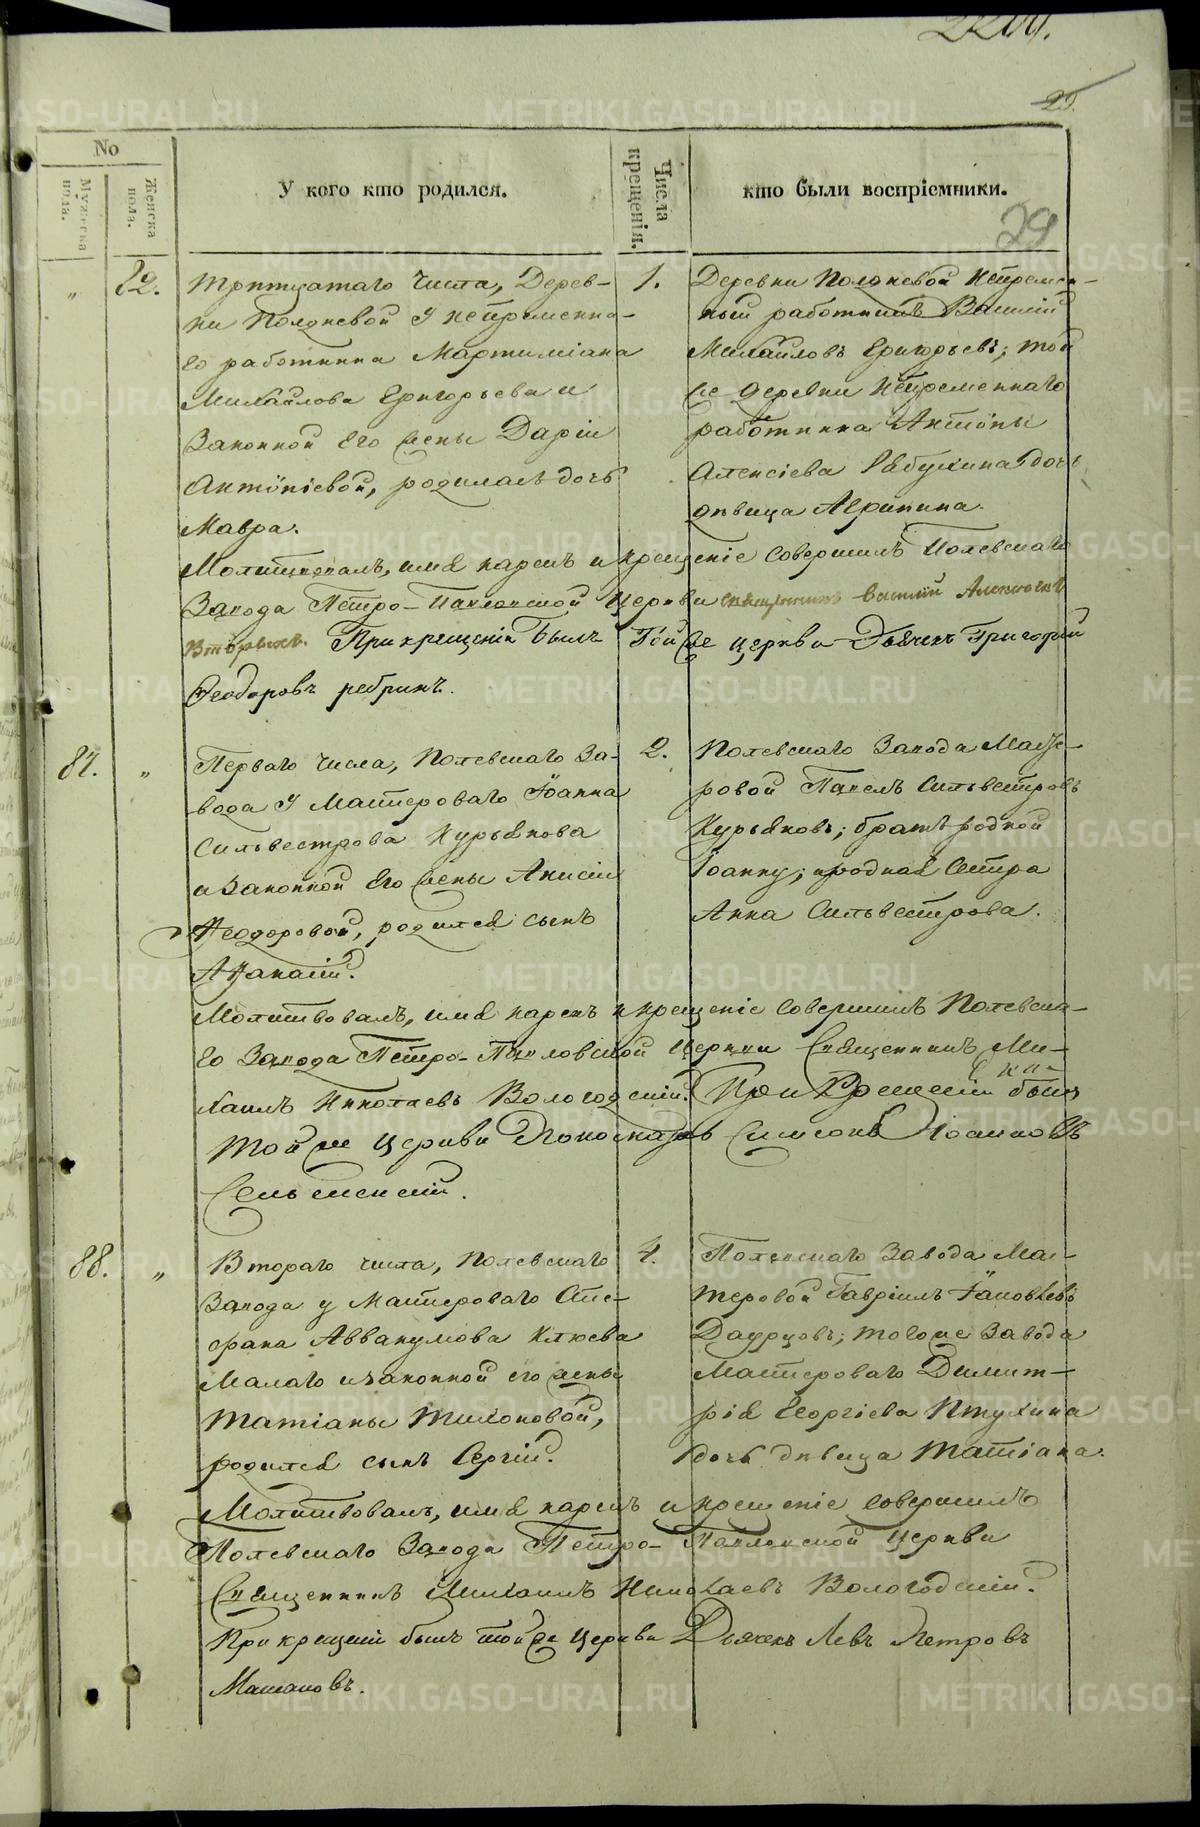 29.
№
Мужеска пола.
Женска пола.
У кого кто родился.
Числа крещенія.
кто были воспріемники.
29
" 82.
Тритцатаго числа, Дерев-
ни Полдневой у непременна-
го работника Мартиміана
Михайлова Григорьева и
Законной его жены Даріи
Антипіевой, родилась дочь
Мавра.
1.
Деревни Полдневой Непремен-
ный работникъ Василій
Михайловъ Григорьевъ; той
же деревни Непременнаго
работника Антипы
Алексіева дочь
дѣвица Агрипина.
Молитвовалъ, имя нарекъ и крещеніе совершилъ Полевскаго
Завода Петро-Павловской Церкви священникъ Василій
При крещеніи былъ той же церкви Дьячекъ Григорій
Феодоровъ ребринъ.
87. "
Перваго числа, Полевскаго За-
вода у Мастероваго Іоанна
Сильвестрова Курьякова
и Законной его жены Анисіи
Феодоровой, родился сынъ
Афанасій.
2.
Полевскаго Завода Масте-
ровой Павелъ Сильвестровъ
Курьяковъ; братъ родной
Іоанну; и родная Сестра
Анна Сильвестрова.
Молитвовалъ, имя нарекъ и крещеніе совершилъ Полевска-
го Завода Петро-Павловской Церкви Священникъ Ми-
хаилъ Николаевъ Вологодскій. При Крещеніи былъ
той же Церкви Пономарь Симеонъ Іоанновъ
88. "
Втораго числа, Полевскаго
Завода у Мастероваго Сте-
фана Аввакумова Клюева
Малаго и законной его жены
Татіаны Тихоновой,
родился сынъ Сергій.
4.
Полевскаго Завода Мас-
теровой Гавріилъ Іаковлевъ
Даурцовъ; тогоже Завода
Мастероваго Димит-
рія Георгіева Птухина
дочь дѣвица Татіана.
Молитвовалъ, имя нарекъ и крещеніе совершилъ
Полевскаго Завода Петро-Павловской Церкви
Священникъ Михаилъ Николаевъ Вологодскій.
При крещеніи былъ той же Церкви Дьячекъ Левъ Петровъ
METRIKI.GASO-URAL.RU